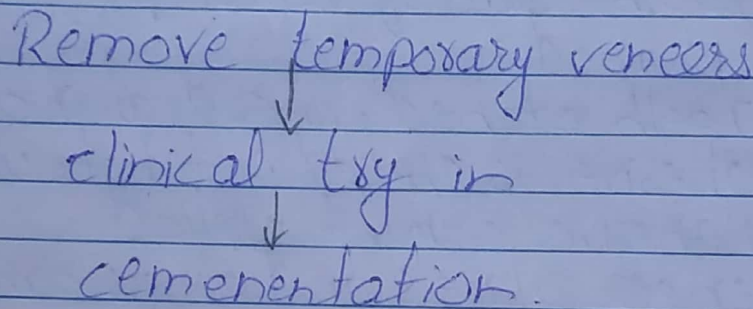 Remove temporary veneers
↓
clinical try in
↓
cemenentation.